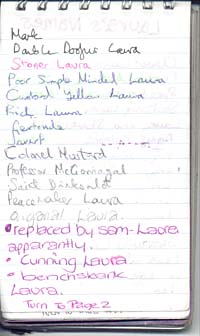 Mark
Double Doofus Laura
Stoner Laura
Poor Simple Minded Laura
Custard Yellow Laura
Rich Laura
Gertrude
Servant
Colonel Mustard
Professor McGonnagal
Saint
Peacemaker Laura
Original Laura
• replaced by sam-Laura
apparantly.
• Cunning Laura
• benchsbank
Laura.
Turn To Page 2